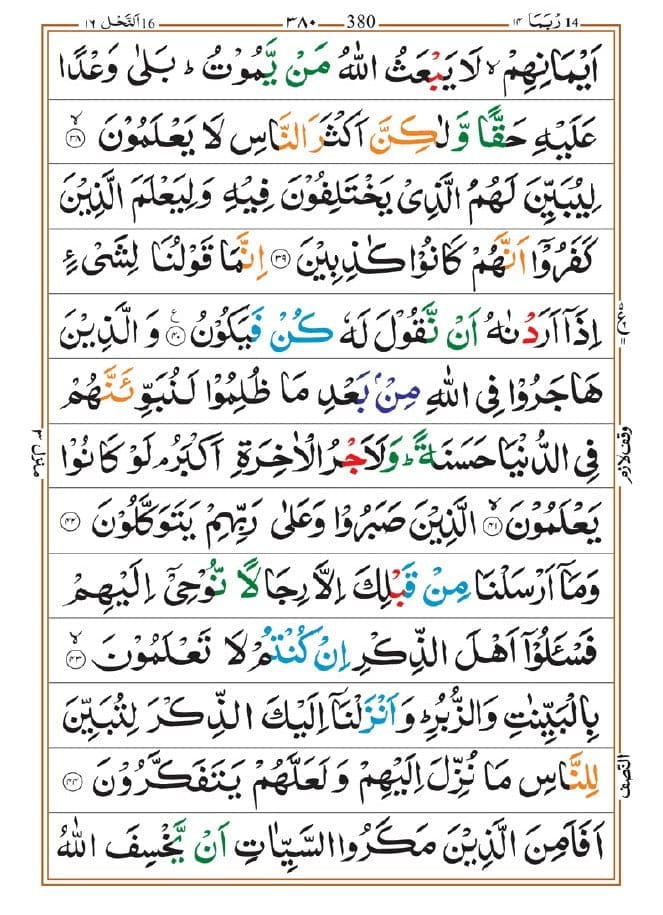 16 اَلنَّحْل ١٦ ٣٨٠ 380 14 رُبَمَا ١٤
اَيْمَانِهِمْ ۙ لَا يَبْعَثُ اللّٰهُ مَنْ يَّمُوْتُ ؕ بَلٰى وَعْدًا
عَلَيْهِ حَقًّا وَّلٰكِنَّ اَكْثَرَ النَّاسِ لَا يَعْلَمُوْنَ ۙ ﴿٣٨﴾
لِيُبَيِّنَ لَهُمُ الَّذِىْ يَخْتَلِفُوْنَ فِيْهِ وَلِيَعْلَمَ الَّذِيْنَ
كَفَرُوْۤا اَنَّهُمْ كَانُوْا كٰذِبِيْنَ ﴿٣٩﴾ اِنَّمَا قَوْلُنَا لِشَىْءٍ
اِذَاۤ اَرَدْنٰهُ اَنْ نَّقُوْلَ لَهٗ كُنْ فَيَكُوْنُ ﴿٤٠﴾ ع وَ الَّذِيْنَ
هَاجَرُوْا فِى اللّٰهِ مِنْۢ بَعْدِ مَا ظُلِمُوْا لَنُبَوِّئَنَّهُمْ
فِى الدُّنْيَا حَسَنَةً ؕ وَلَاَجْرُ الْاٰخِرَةِ اَكْبَرُ ۘ لَوْ كَانُوْا
وقف لازم
منزل ٣
يَعْلَمُوْنَ ۙ ﴿٤١﴾ الَّذِيْنَ صَبَرُوْا وَعَلٰى رَبِّهِمْ يَتَوَكَّلُوْنَ ﴿٤٢﴾
وَمَاۤ اَرْسَلْنَا مِنْ قَبْلِكَ اِلَّا رِجَالًا نُّوْحِىْۤ اِلَيْهِمْ
فَسْـَٔلُوْۤا اَهْلَ الذِّكْرِ اِنْ كُنْتُمْ لَا تَعْلَمُوْنَ ۙ ﴿٤٣﴾
بِالْبَيِّنٰتِ وَالزُّبُرِ ؕ وَاَنْزَلْنَاۤ اِلَيْكَ الذِّكْرَ لِتُبَيِّنَ
لِلنَّاسِ مَا نُزِّلَ اِلَيْهِمْ وَلَعَلَّهُمْ يَتَفَكَّرُوْنَ ﴿٤٤﴾
النصف
اَفَاَمِنَ الَّذِيْنَ مَكَرُوا السَّيِّاٰتِ اَنْ يَّخْسِفَ اللّٰهُ